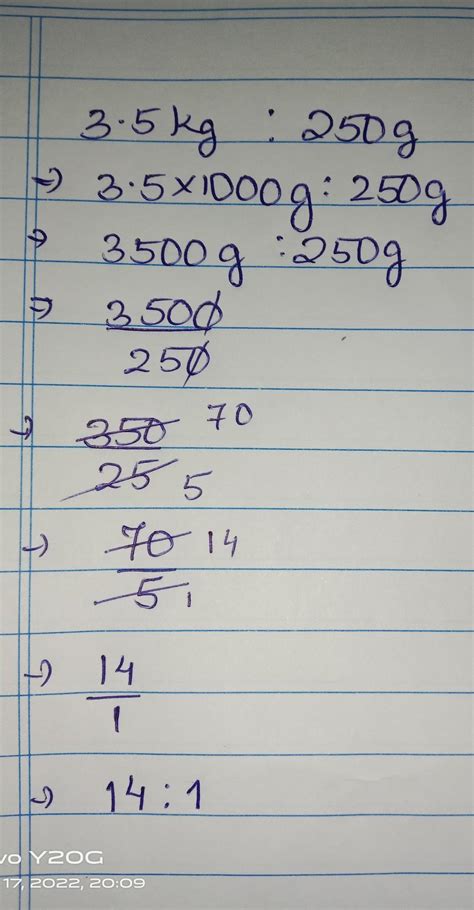 3.5 kg : 250g
→ 3.5×1000g : 250g
→ 3500g : 250g
⇒ 3500
250
→ 350 70
25 5
→ 70 14
5 1
→ 14
1
→ 14 : 1
vo Y20G
17, 2022, 20:09